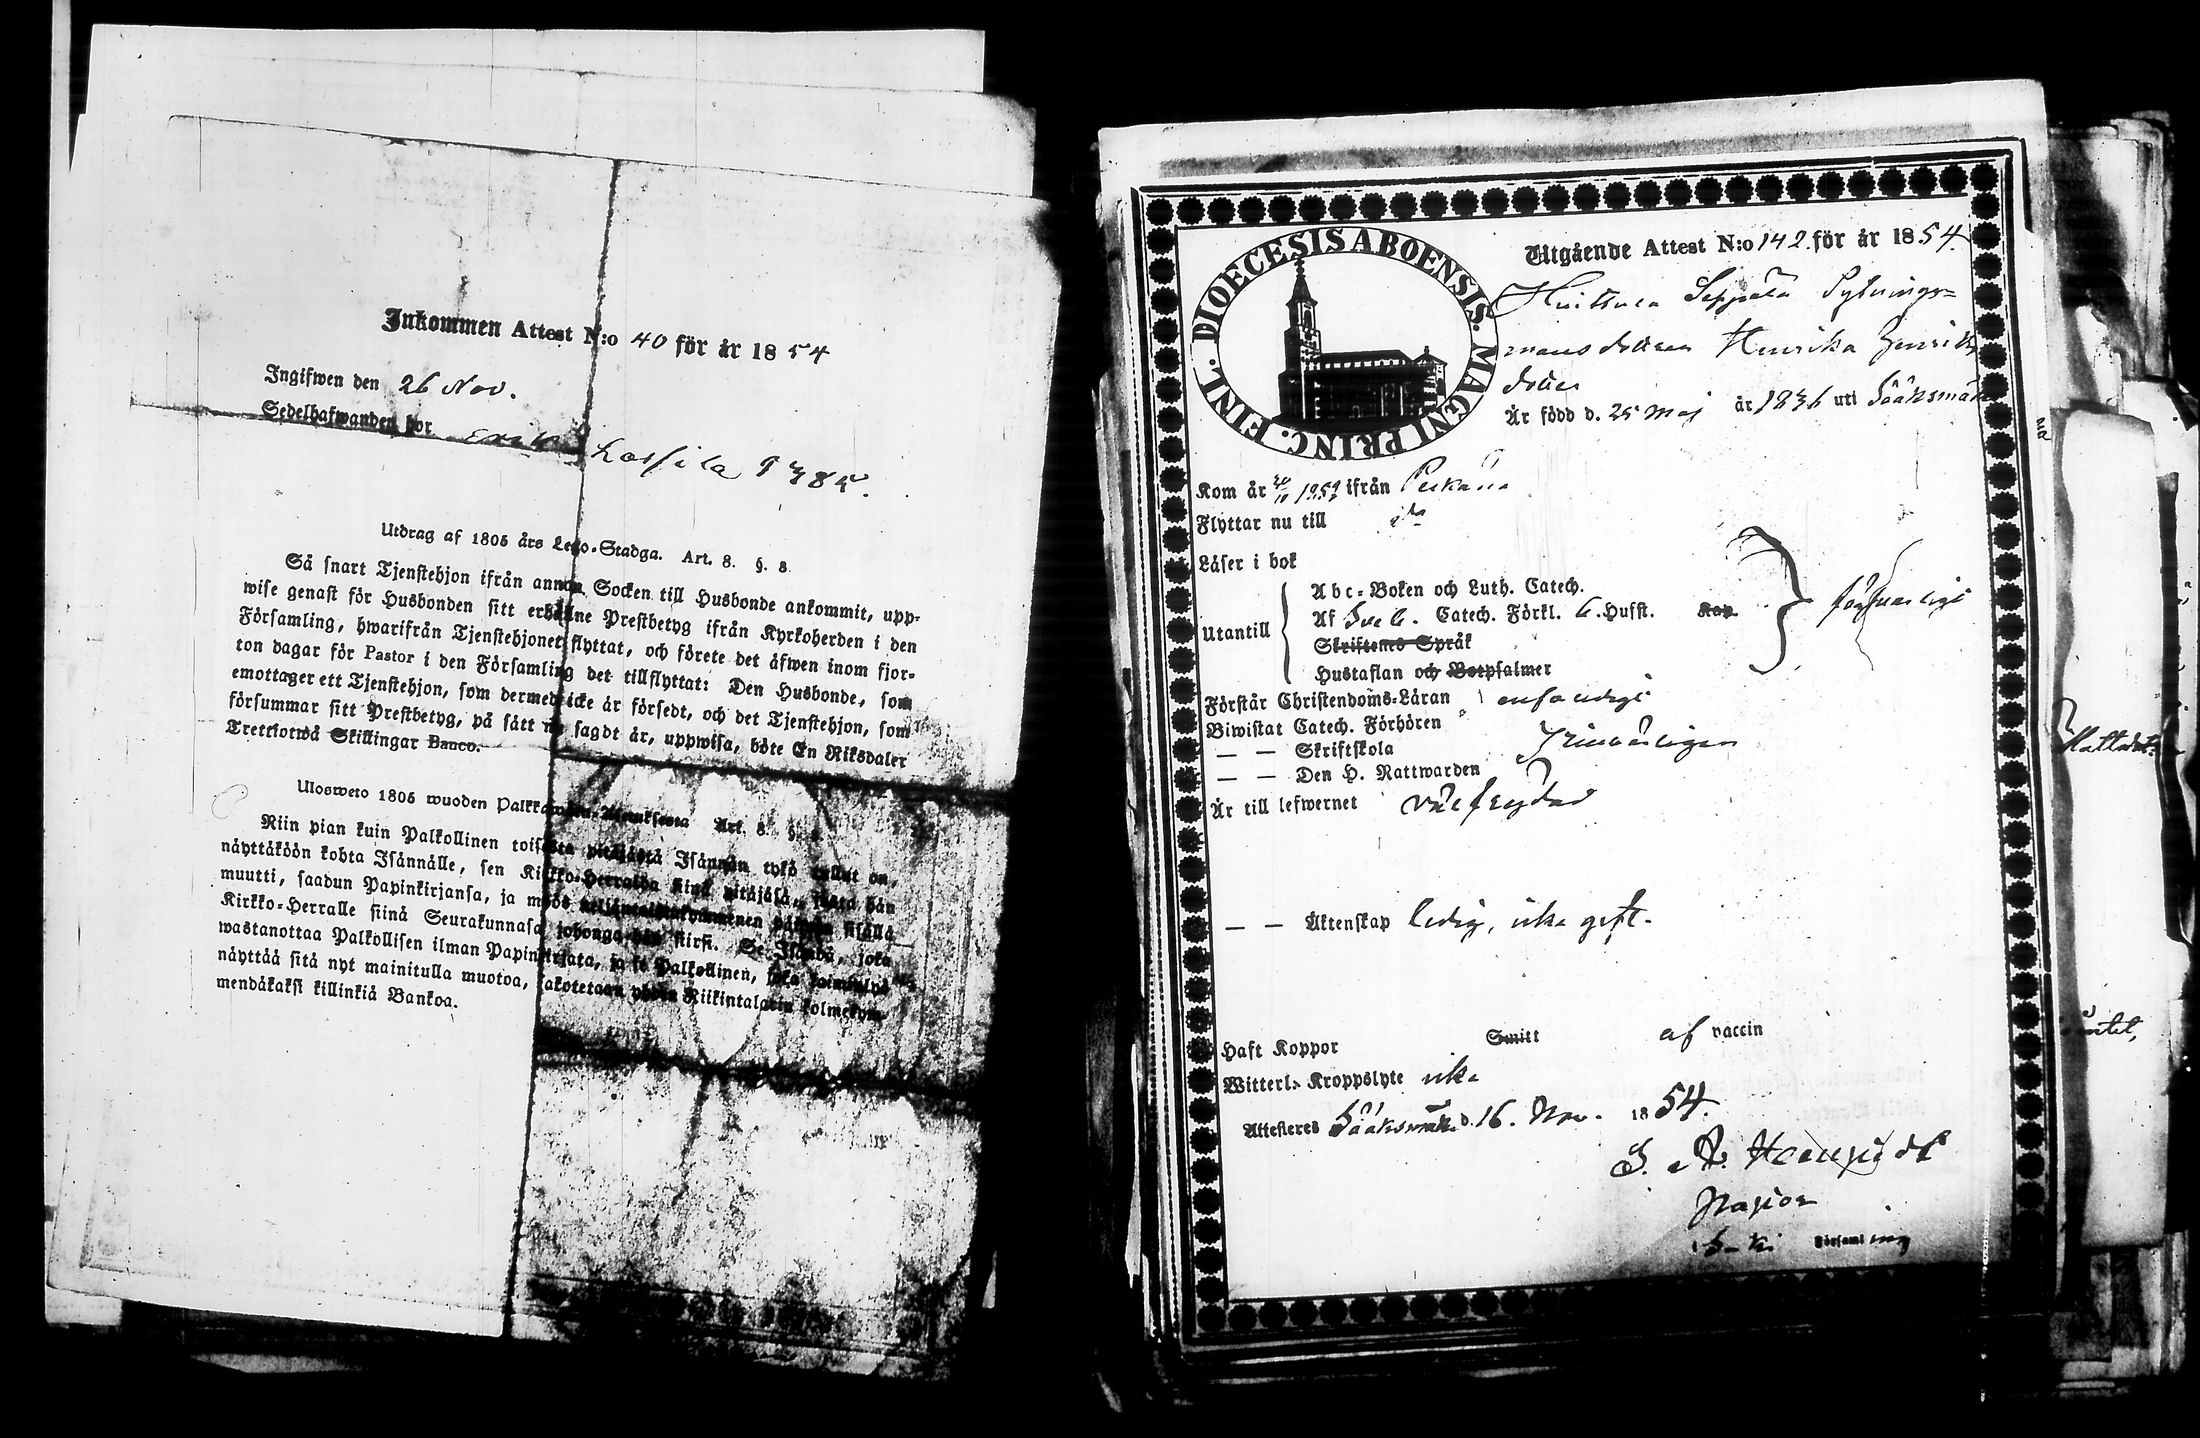 Inkommen Attest N:o 40 för år 1854
Ingifwen den 26 Nov.
Sedelhafwanden bor Erik Lassila
Utdrag af 1805 års Lego-Stadga. Art. 8. §. 8.
Så snart Tjenstehjon ifrån annan Socken till Husbonde ankommit, upp-
wise genast för Husbonden sitt erhållne Prestbetyg ifrån Kyrkoherden i den
Församling, hwarifrån Tjenstehjonet flyttat, och förete det äfwen inom fjor-
ton dagar för Pastor i den Församling det tillflyttat: Den Husbonde, som
emottager ett Tjenstehjon, som dermed icke är försedt, och det Tjenstehjon, som
försummar sitt Prestbetyg, på sätt nu sagdt är, uppwisa, böte En Riksdaler
Trettiotwå Skillingar Banco.
Ulosweto 1805 wuoden Palkkawäen-Asetuksesta Art. 8. §.
Niin pian kuin Palkollinen toisesta pitäjästä Isännän tykö tullut on,
näyttäköön kohta Isännälle, sen Kirkko-Herralda siinä pitäjäsä, josta hän
muutti, saadun Papinkirjansa, ja myös neljäntoistakymmenen päiwän sisällä
Kirkko-Herralle siinä Seurakunnasa, johonga hän siirsi. Se Isändä, joka
wastanottaa Palkollisen ilman Papinkirjata, ja se Palkollinen, joka laiminlyö
näyttää sitä nyt mainitulla muotoa, sakotetaan yhden Riikintalarin kolmekym-
mendäkaksi killinkiä Bankoa.
DIOECESIS ABOENSIS. MAGNI PRINC. FINL.
Utgående Attest N:o 142 för år 1854
Huittula Seppälä Sytnings-
mans dottren Henrika Henriks
dotter
Är född d. 25 Maj år 1836 uti Sääksmäki
Kom år ifrån Pälkäne
Flyttar nu till do
Läser i bok
Abc-Boken och Luth. Catech.
Utantill Af Sveb. Catech. Förkl. 6. Hufst. Kap. försvarligt
Skriftens Språk
Hustaflan och Botpsalmer
Förstår Christendoms-Läran enfaldigt
Biwistat Catech. Förhören
— — Skriftskola
— — Den H. Nattwarden
Är till lefwernet välfrejdad
— — Äktenskap ledig, icke gift.
Haft Koppor Smitt af vaccin
Witterl. Kroppslyte icke
Attesteres Sääksmäki d. 16. Nov. 1854.
Pastor
Församling